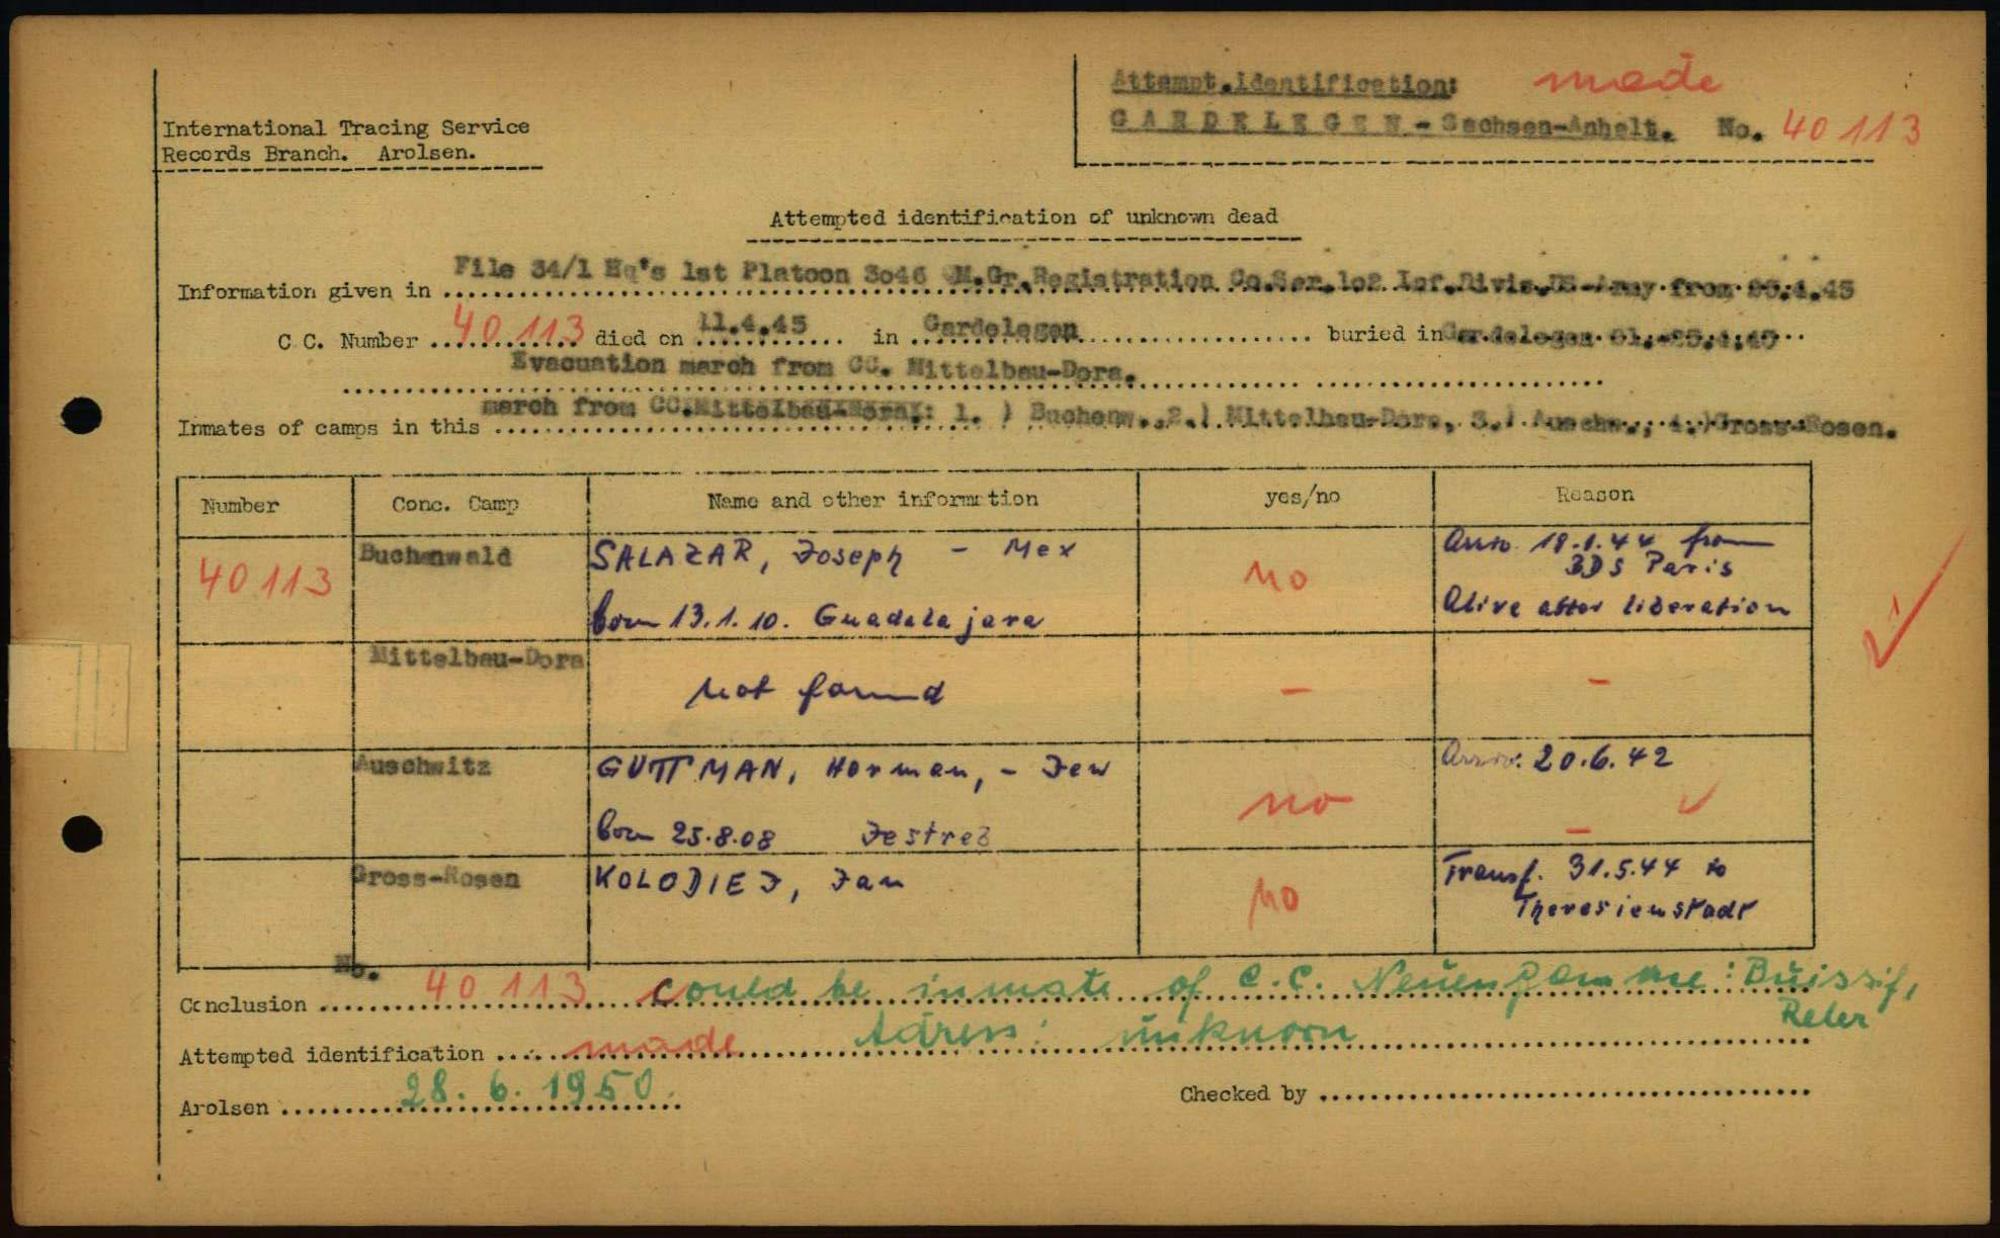 Attempt.identification: made
GARDELEGEN - Sachsen-Anhalt. No. 40113
International Tracing Service
Records Branch. Arolsen.
Attempted identification of unknown dead
Information given in File 34/1 Hq's 1st Platoon 3o46 QM.Gr.Registration Co.Ser.1o2 Inf.Divis.US-Army from 25.4.45
C C. Number 40113 died on 11.4.45 in Gardelegen buried in Gardelegen 21.-25.4.45
Evacuation march from CC. Mittelbau-Dora.
Inmates of camps in this march from CC.Mittelbau-Dora: 1. ) Buchenw., 2.) Mittelbau-Dora, 3.) Auschw., 4.)Gross-Rosen.
Number Conc. Camp Name and other information yes/no Reason
40113 Buchenwald SALAZAR, Joseph - Mex no Arriv. 19.1.44 from
BDS Paris
born 13.1.10. Guadalajara Alive after liberation
Mittelbau-Dora
not found - -
Auschwitz GUTTMAN, Herman, - Jew no Arriv. 20.6.42
born 25.8.08 Jestreb -
Gross-Rosen KOLODIEJ, Jan no Transf. 31.5.44 to
Theresienstadt
Conclusion No. 40113 could be inmate of C.C. Neuengamme: Buissif,
Attempted identification made Adress: unknorn
Arolsen 28. 6. 1950. Checked by